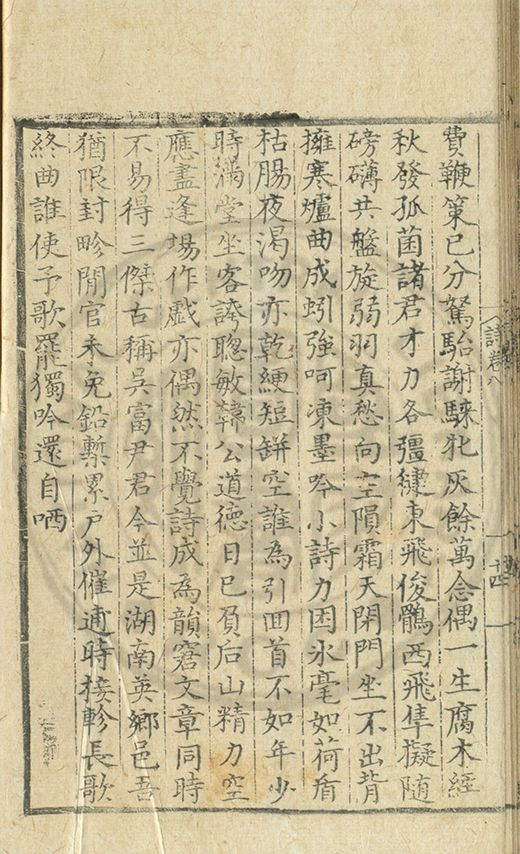 費鞭策已分駑駘謝騋牝灰餘萬念偶一生腐木經
秋發孤菌諸君才力各彊繣東飛俊鶻西飛隼擬随
磅礴共盤旋弱羽真愁向空隕霜天閉門坐不出背
擁寒爐曲成蚓強呵凍墨吟小詩力困氷毫如荷盾
枯腸夜渴吻亦乾綆短缾空誰為引回首不如年少
時滿堂坐客誇聦敏韓公道徳日已負后山精力空
應盡逢場作戲亦偶然不覺詩成為韻窘文章同時
不易得三傑古稱吳富尹君今並是湖南英鄉邑吾
猶限封畛閒官未免鉛槧累戶外催逋時接軫長歌
終曲誰使予歌罷獨吟還自哂
詩卷八
十四